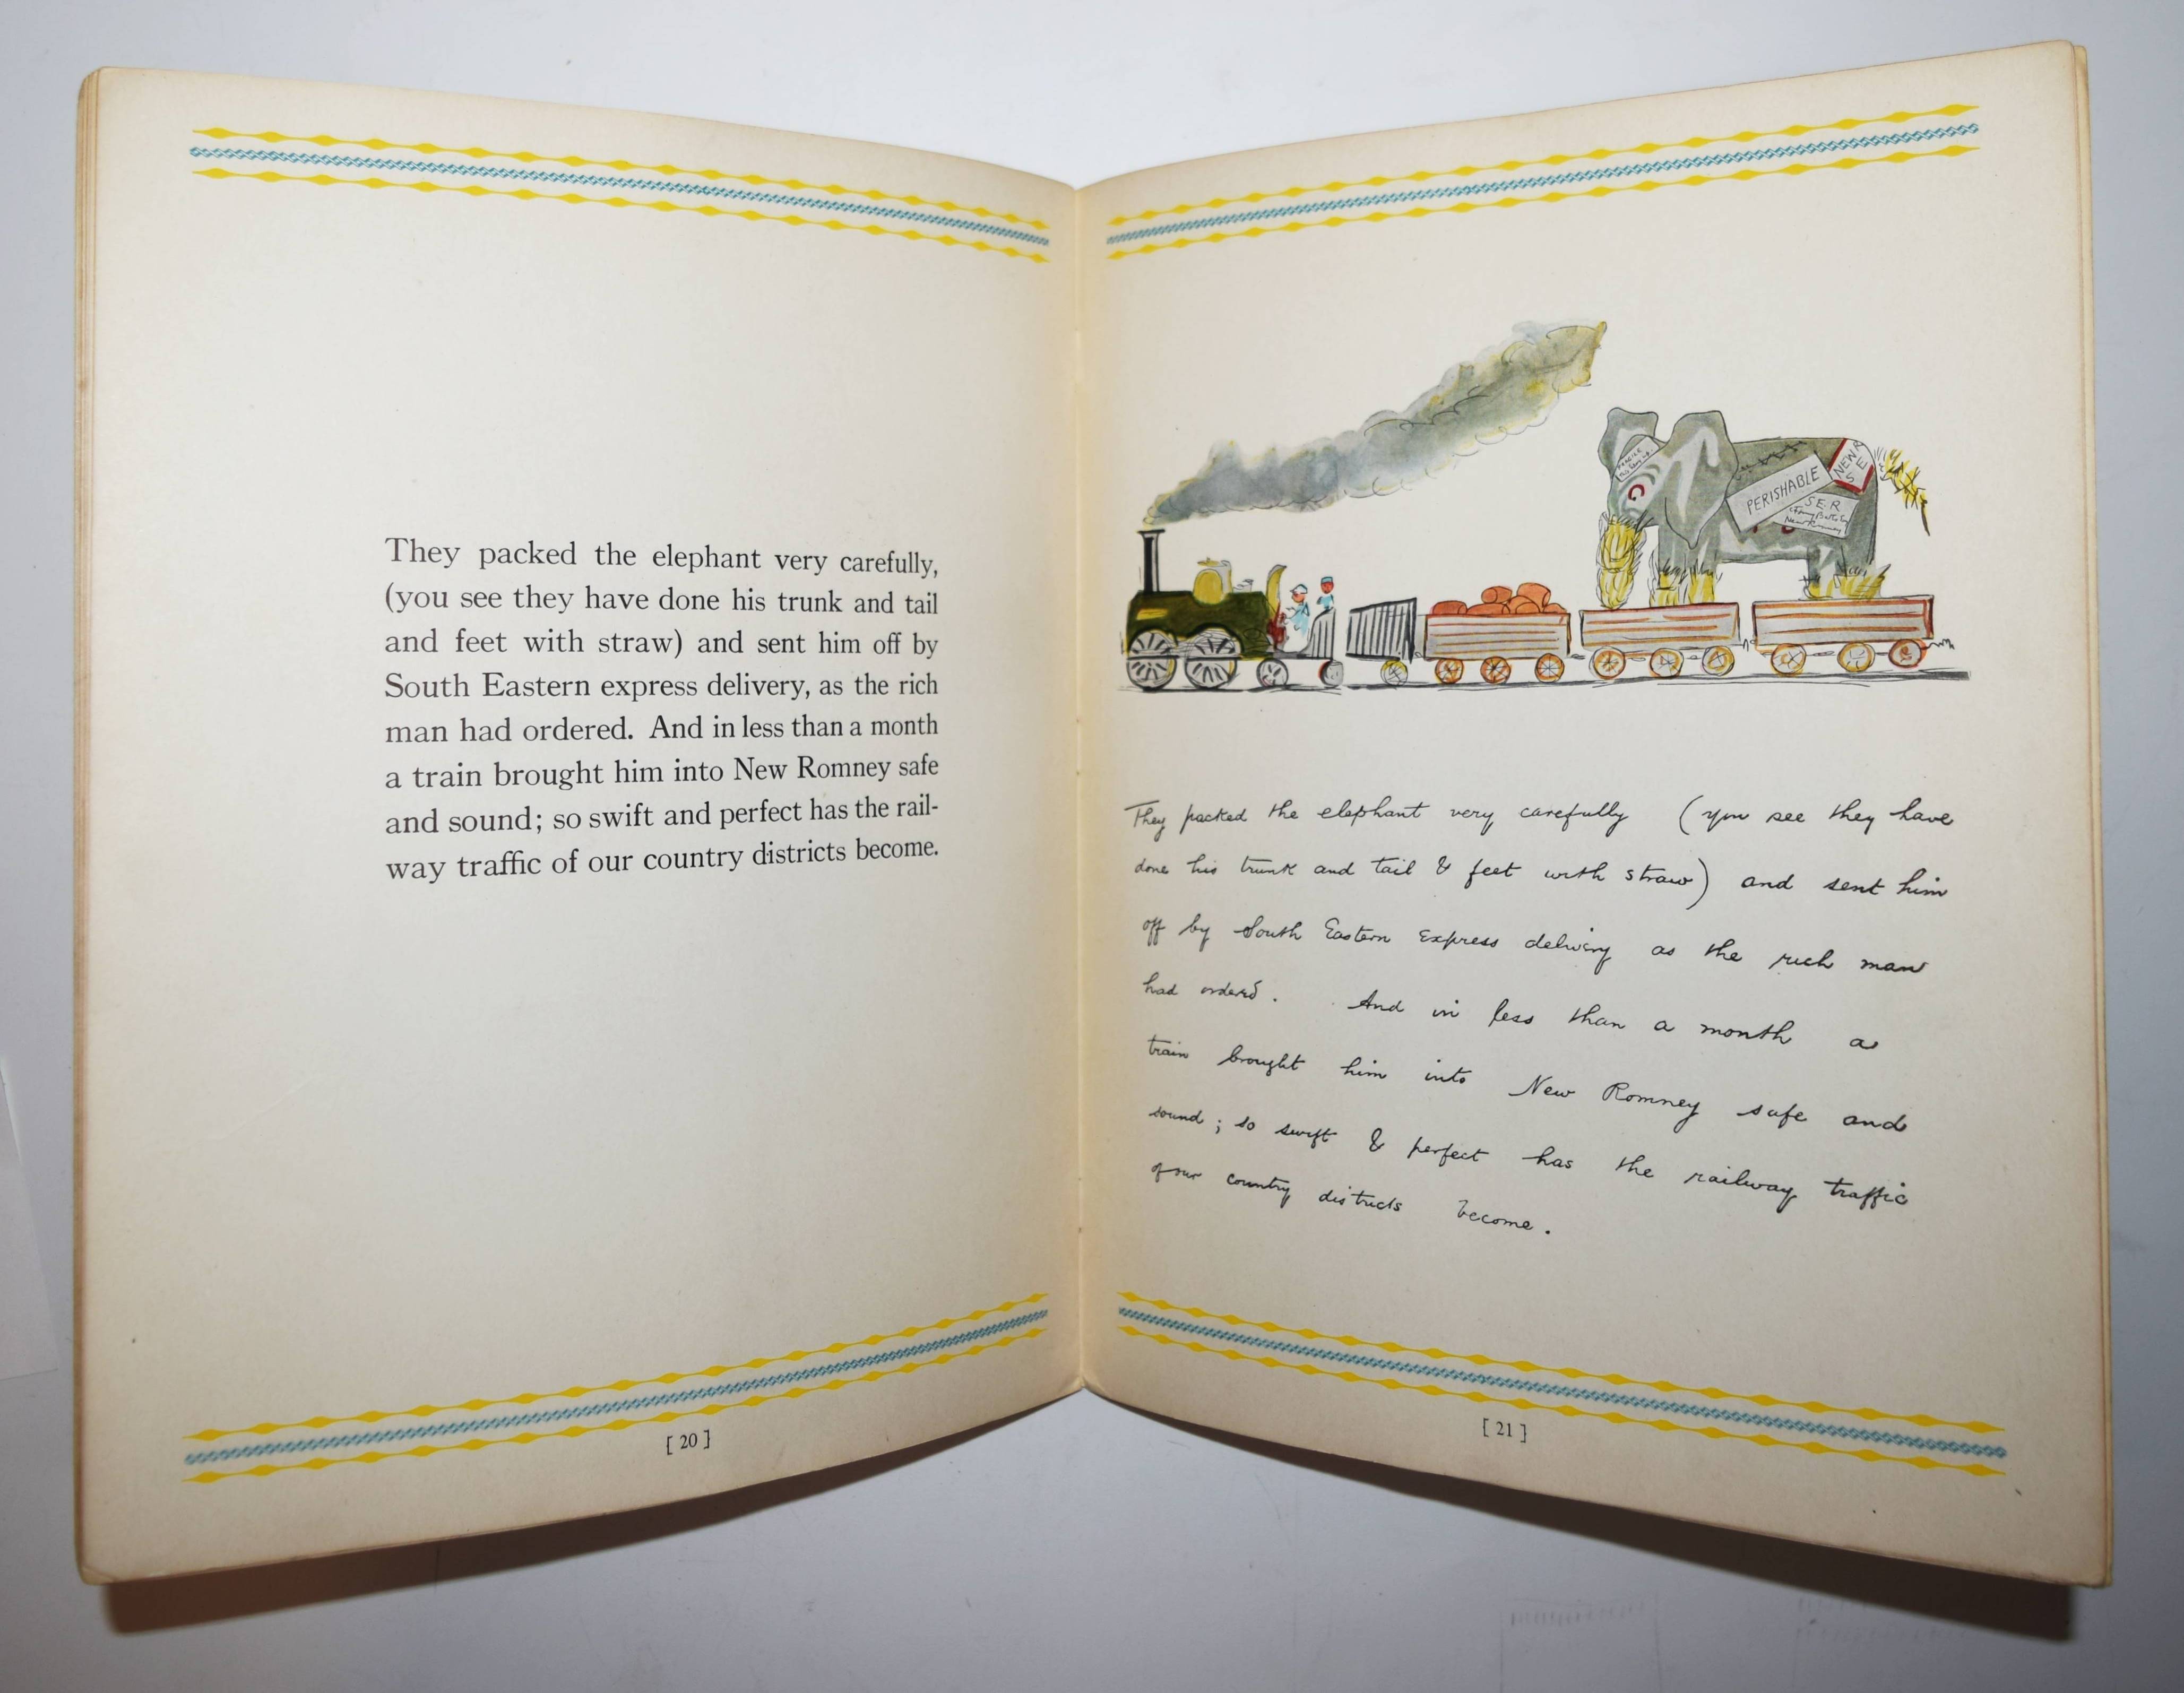 They packed the elephant very carefully,
(you see they have done his trunk and tail
and feet with straw) and sent him off by
South Eastern express delivery, as the rich
man had ordered. And in less than a month
a train brought him into New Romney safe
and sound; so swift and perfect has the rail-
way traffic of our country districts become.
[ 20 ]
G
PERISHABLE
NEW R
S E
S.E.R
New Romney
They packed the elephant very carefully (you see they have
done his trunk and tail & feet with straw) and sent him
off by South Eastern Express delivery as the rich man
had ordered. And in less than a month a
train brought him into New Romney safe and
sound; so swift & perfect has the railway traffic
of our country districts become.
[ 21 ]